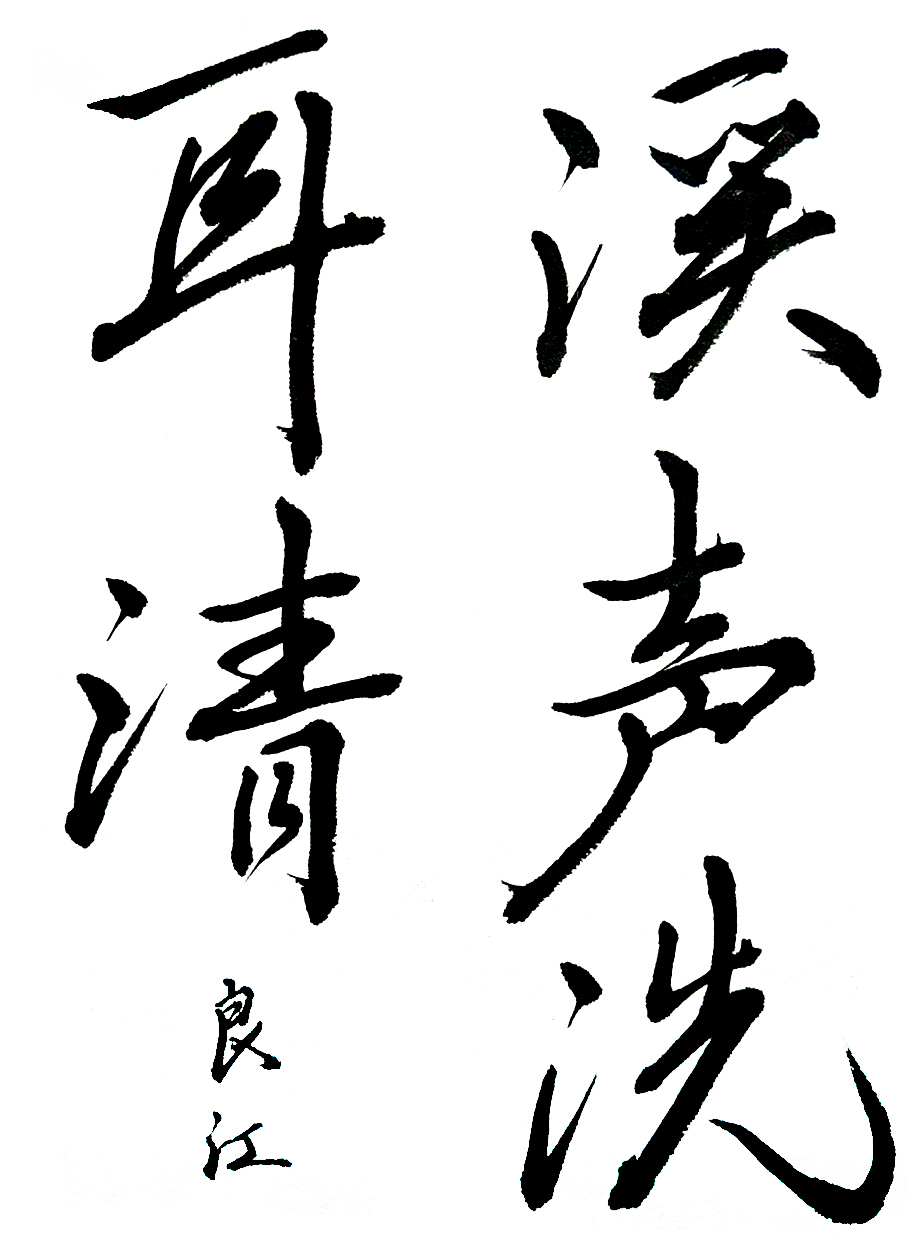 溪声洗
耳清
良江